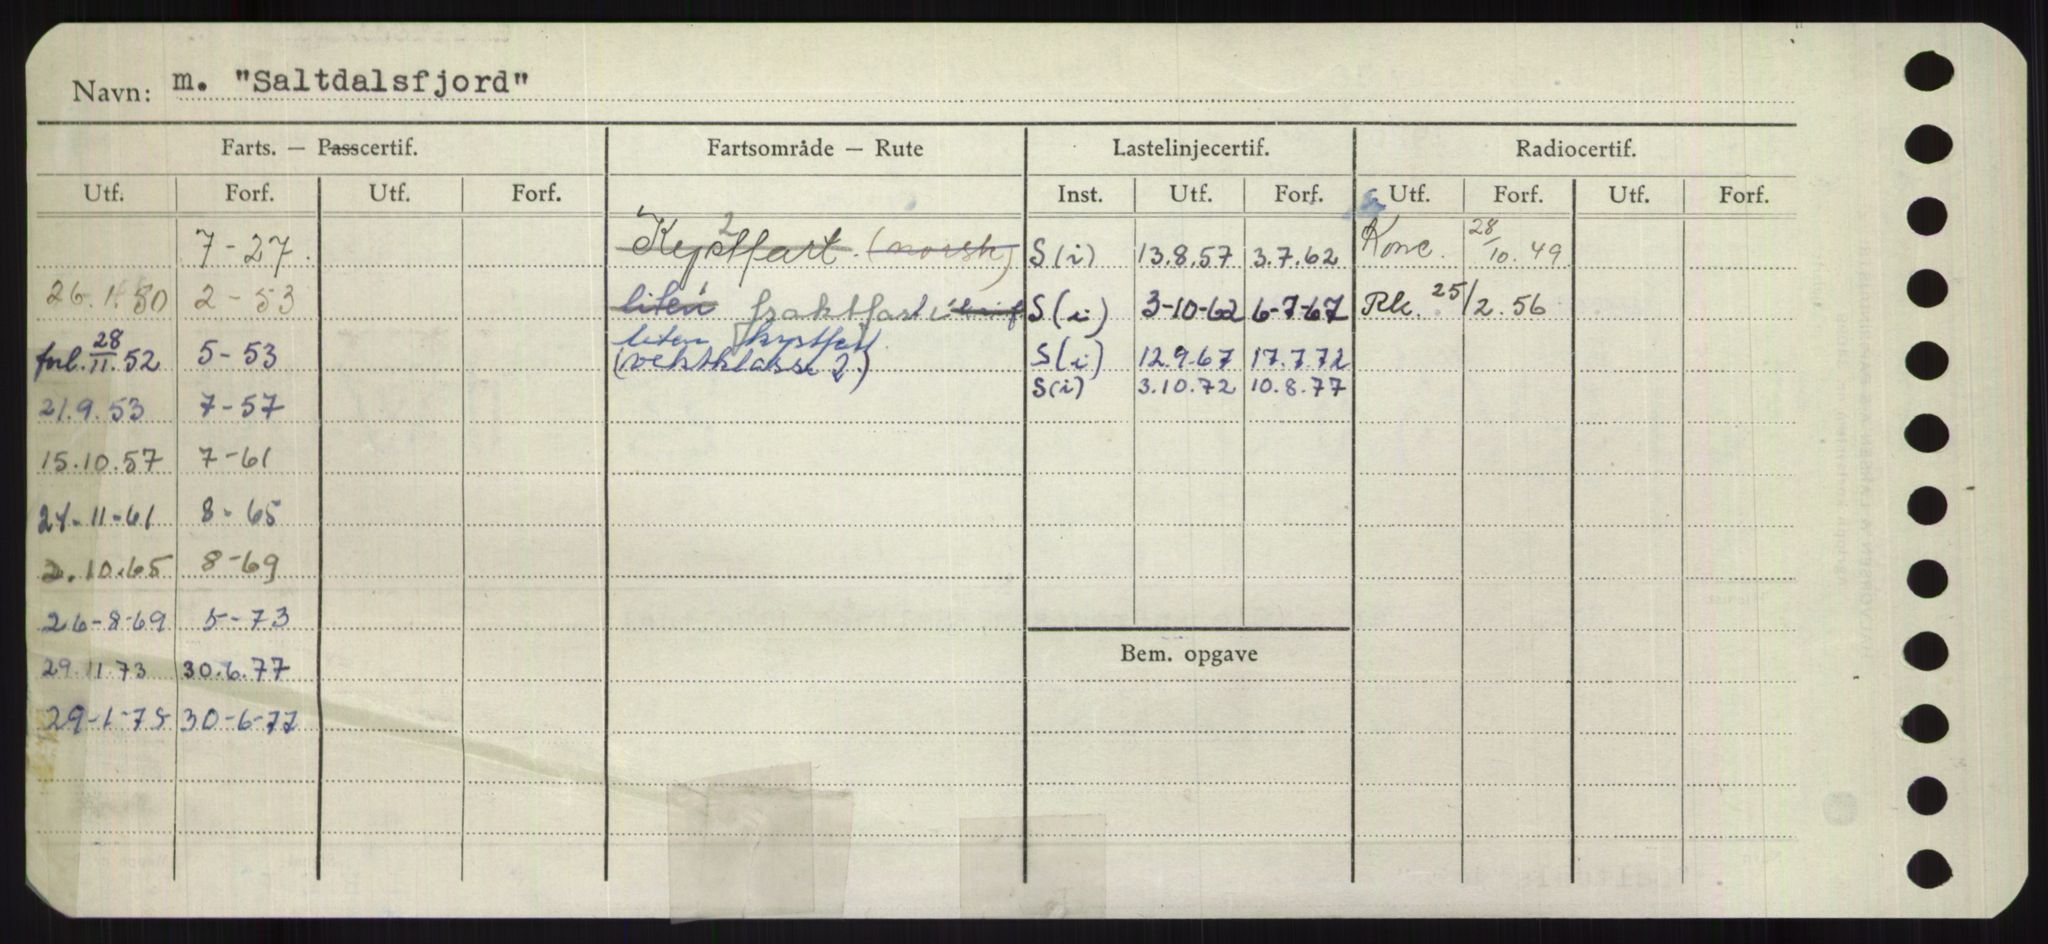 Navn: m. "Saltdalsfjord"
Farts. — Passcertif. Fartsområde — Rute Lastelinjecertif. Radiocertif.
Utf. Forf. Utf. Forf. Inst. Utf. Forf. Utf. Forf. Utf. Forf.
7-27. Kystfart. (norsk) S(i) 13.8.57 3.7.62 Konc. 28/10.49
2-53 liten fraktfart S(i) 3-10-62 6-7-67 Rk. 25/2.56
liten kystfart
forl. 28/11.52 5-53 (vektklasse 2.) S(i) 12.9.67 17.7.72
S(i) 3.10.72 10.8.77
21.9.53 7-57
15.10.57 7-61
24-11-61 8-65
2.10.65 8-69
26-8-69 5-73
29.11.73 30.6.77
Bem. opgave
29-1-75 30-6-77